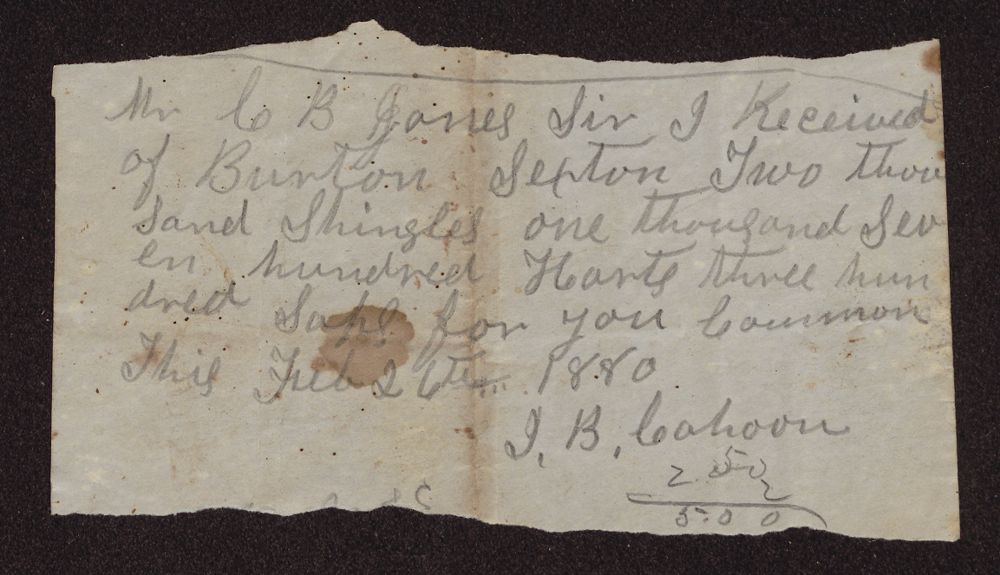 Mr C B Jones Sir I Received
of Burton Sexton Two thou
sand Shingles one thousand Sev
en hundred Harts three hun
dred Saps for you Common
This Feb 26th 1880
J. B. Cahoon
2 50
2
5.00